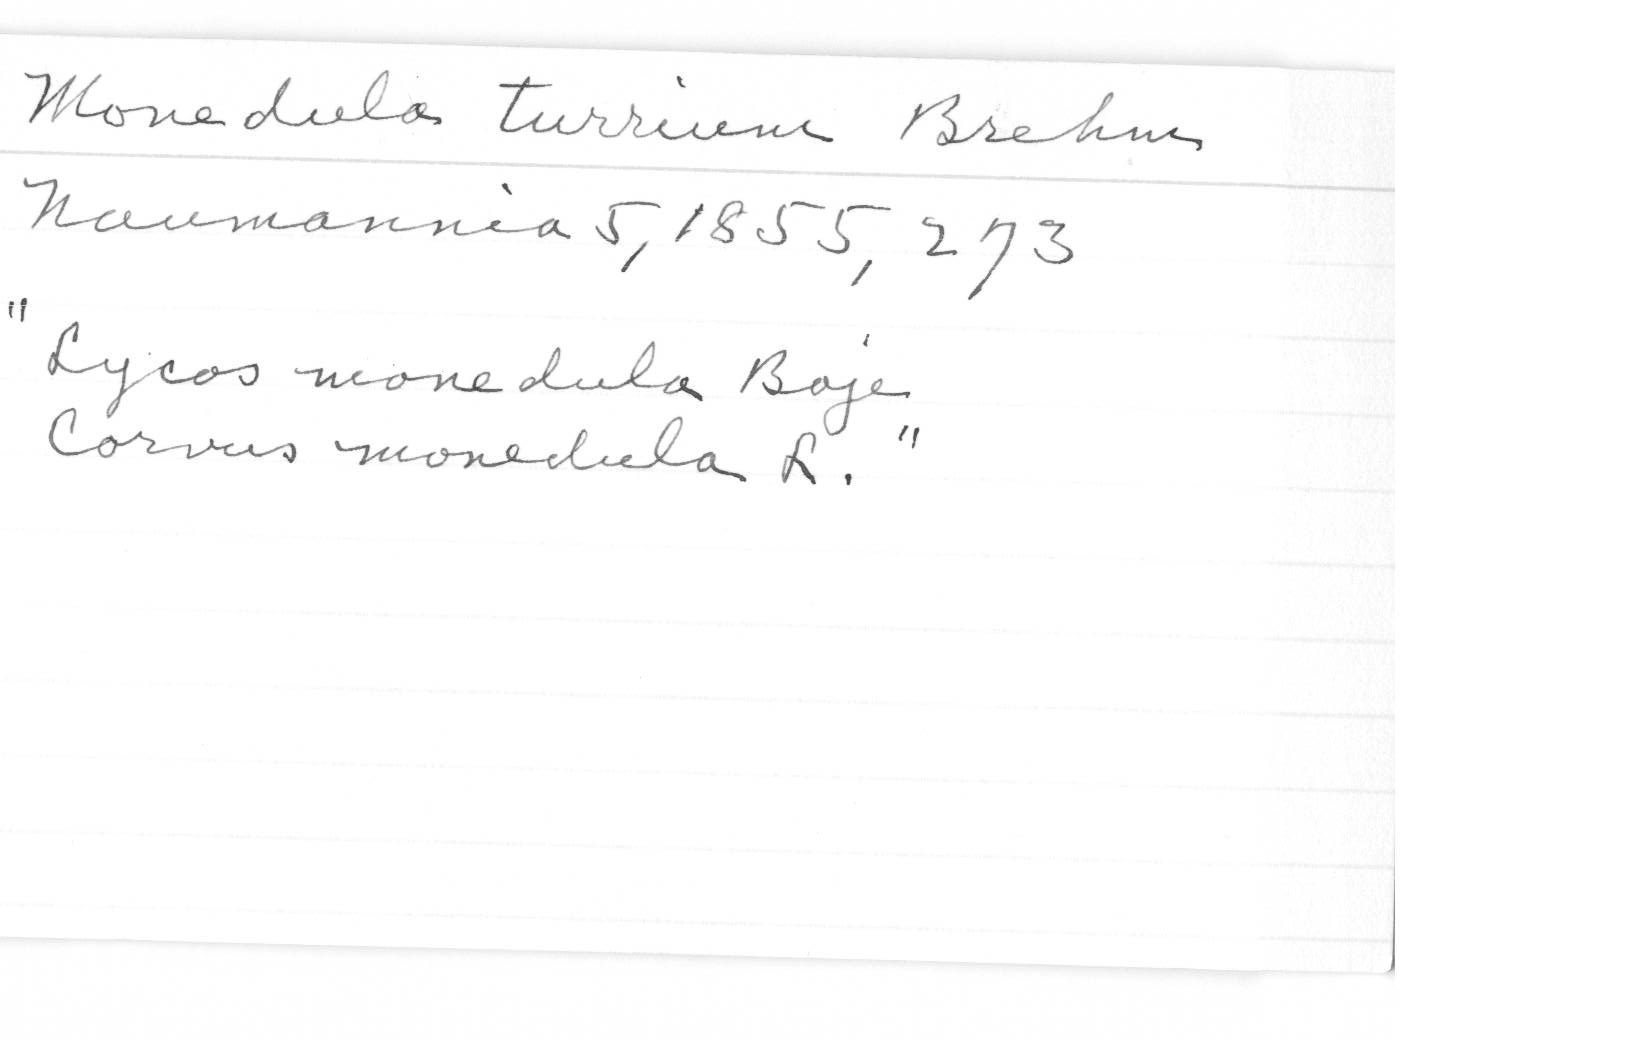 Monedula turrium Brehm
Naumannia 5, 1855, 273
"Lycos monedula Boje
Corvus monedula L."